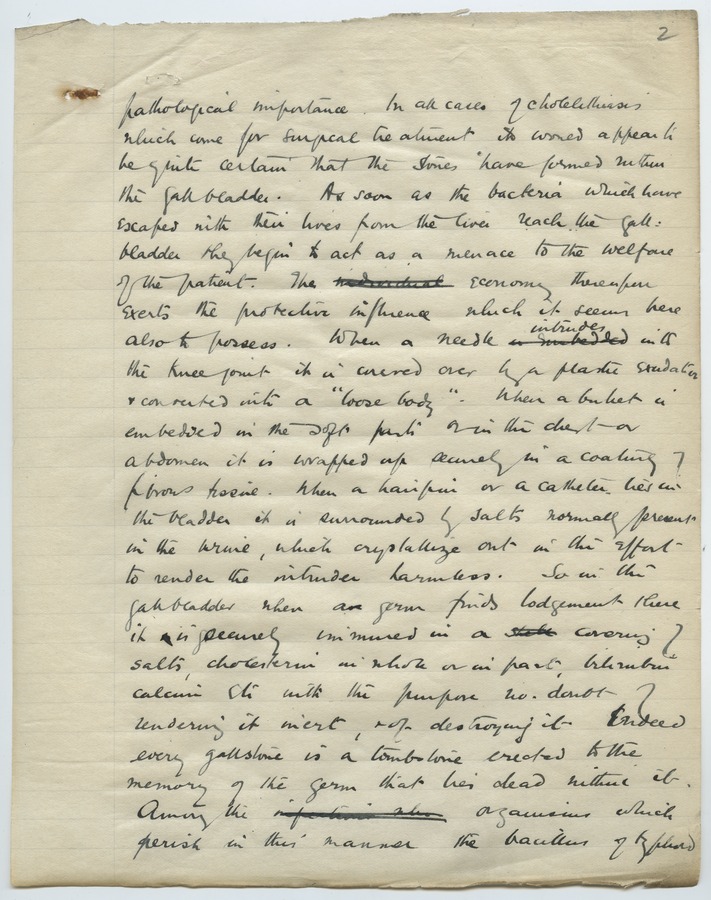 2
pathological importance. In all cases of cholelithiasis
which come for surgical treatment it would appear to
be quite certain that the stones have formed within
the gall bladder. As soon as the bacteria which have
escaped with their lives from the liver reach the gall=
bladder they begin to act as a menace to the welfare
of the patient. The individual economy thereupon
exerts the protective influence which it seems here
also to possess. When a needle is embedded intrudes into
the knee joint it is covered over by a plastic exudation
& converted into a "loose body". When a bullet is
embedded in the soft parts or in the chest or
abdomen it is wrapped up securely in a coating of
fibrous tissue. When a hairpin or a catheter lies in
the bladder it is surrounded by salts normally present
in the urine, which crystallize out in the effort
to render the intruder harmless. So in the
gall bladder when a germ finds lodgement there
it is securely immured in a covering of
salts, cholesterin in whole or in part, bilirubin
calcium etc with the purpose no doubt of
rendering it inert, & of destroying it. Indeed
every gallstone is a tombstone erected to the
memory of the germ that lies dead within it.
Among the organisms which
perish in this manner the bacillus of typhoid